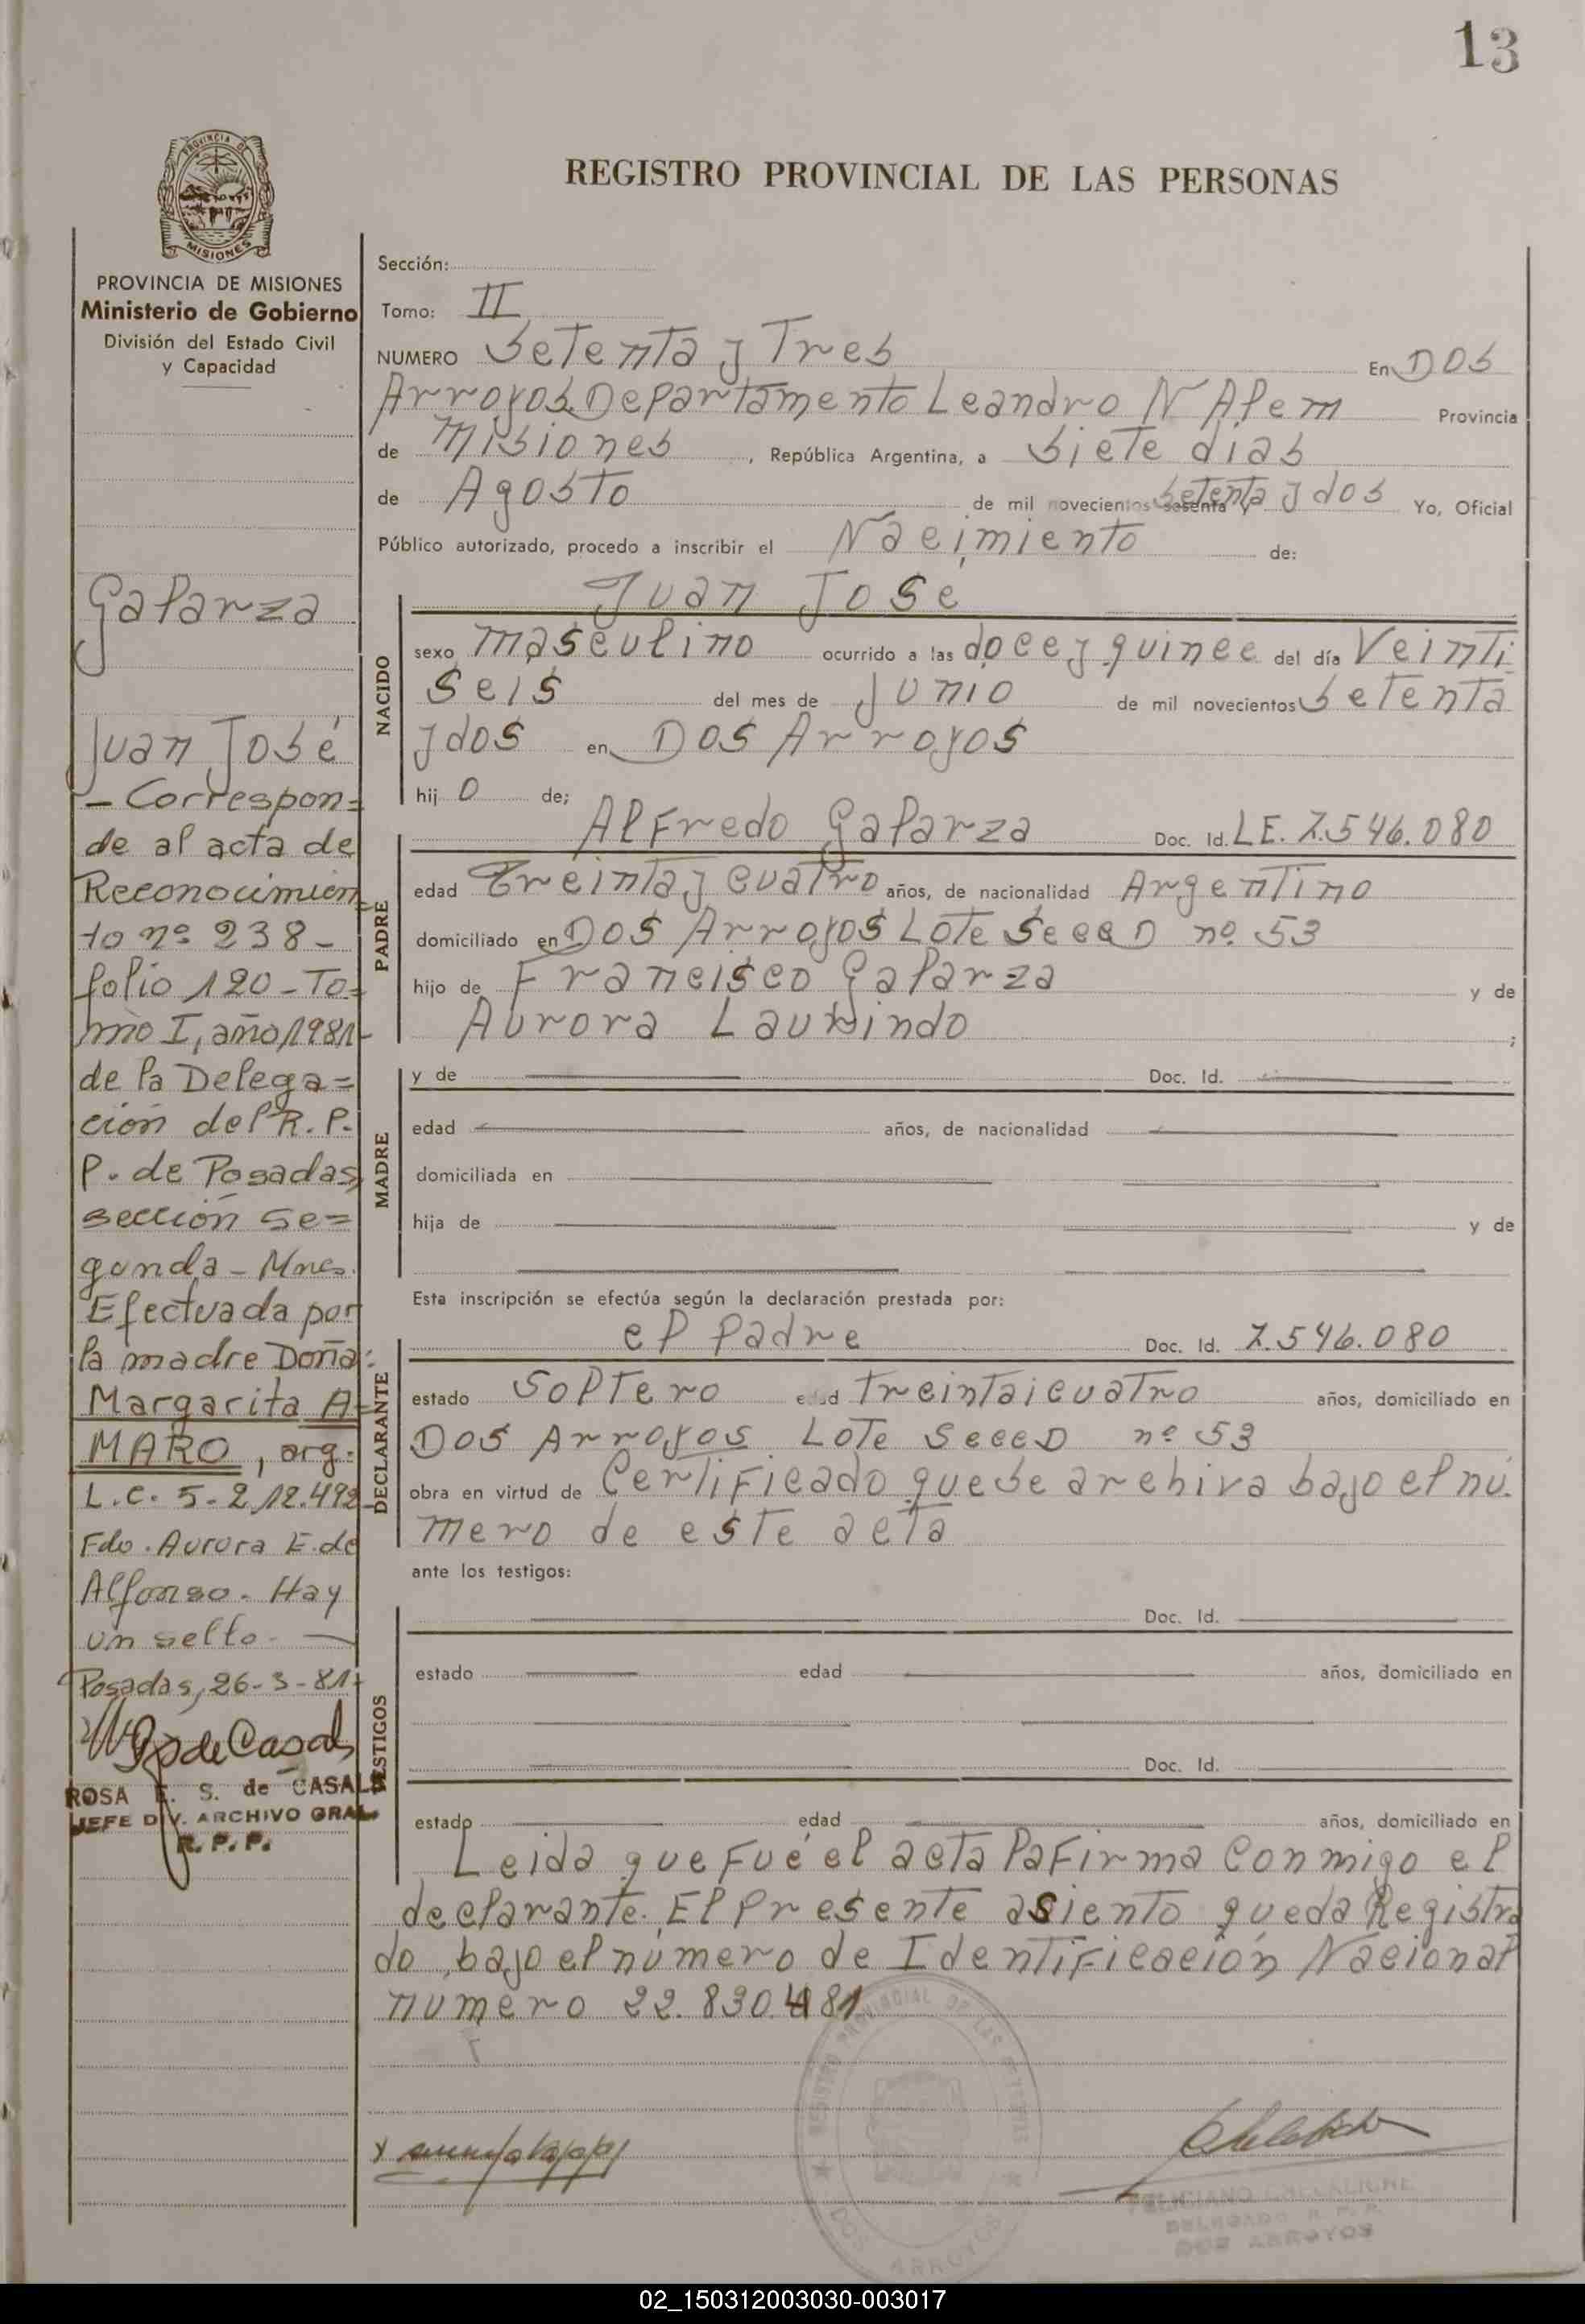 13
PROVINCIA DE
MISIONES
REGISTRO PROVINCIAL DE LAS PERSONAS
PROVINCIA DE MISIONES
Ministerio de Gobierno
División del Estado Civil
y Capacidad
Galarza
Juan José
- Correspon=
de al acta de
Reconocimien
to nº 238-
folio 120-To=
mo I, año 1981-
de la Delega=
ción del R. P.
P. de Posadas,
sección Se=
gunda - Mnes.
Efectuada por
la madre Doña:
Margarita A=
MARO, arg.
L.C. 5.212.492-
Fdo. Aurora E. de
Alfonso. Hay
un sello.
Posadas, 26-3-81-
de Casals
ROSA E. S. de CASALS
JEFE DIV. ARCHIVO GRAL.
R. P. P.
Sección:
Tomo: II
NUMERO Setenta y Tres En Dos
Arroyos Departamento Leandro N Alem Provincia
de Misiones, República Argentina, a siete dias
de Agosto de mil novecientos sesenta y setenta y dos Yo, Oficial
Público autorizado, procedo a inscribir el Nacimiento de:
Juan José
NACIDO
sexo masculino ocurrido a las doce y quince del día Veinti
seis del mes de Junio de mil novecientos setenta
y dos en Dos Arroyos
hij o de;
PADRE
Alfredo Galarza Doc. Id. L.E. 7.546.080
edad Treinta y cuatro años, de nacionalidad Argentino
domiciliado en Dos Arroyos Lote Secc D nº 53
hijo de Francisco Galarza y de
Aurora Laurindo ;
MADRE
y de Doc. Id.
edad años, de nacionalidad
domiciliada en
hija de y de
Esta inscripción se efectúa según la declaración prestada por:
DECLARANTE
el Padre Doc. Id. 7.546.080
estado Soltero edad Treintaicuatro años, domiciliado en
Dos Arroyos Lote Secc D nº 53
obra en virtud de Certificado que se archiva bajo el nú.
mero de este acta
ante los testigos:
TESTIGOS
Doc. Id.
estado edad años, domiciliado en
Doc. Id.
estado edad años, domiciliado en
Leida que fué el acta la firma conmigo el
declarante. El presente asiento queda Registra
do, bajo el número de Identificación Nacional
numero 22.830.481
REGISTRO PROVINCIAL DE LAS PERSONAS
DOS ARROYOS
FELICIANO
DELEGADO R. P. P.
DOS ARROYOS
02_150312003030-003017